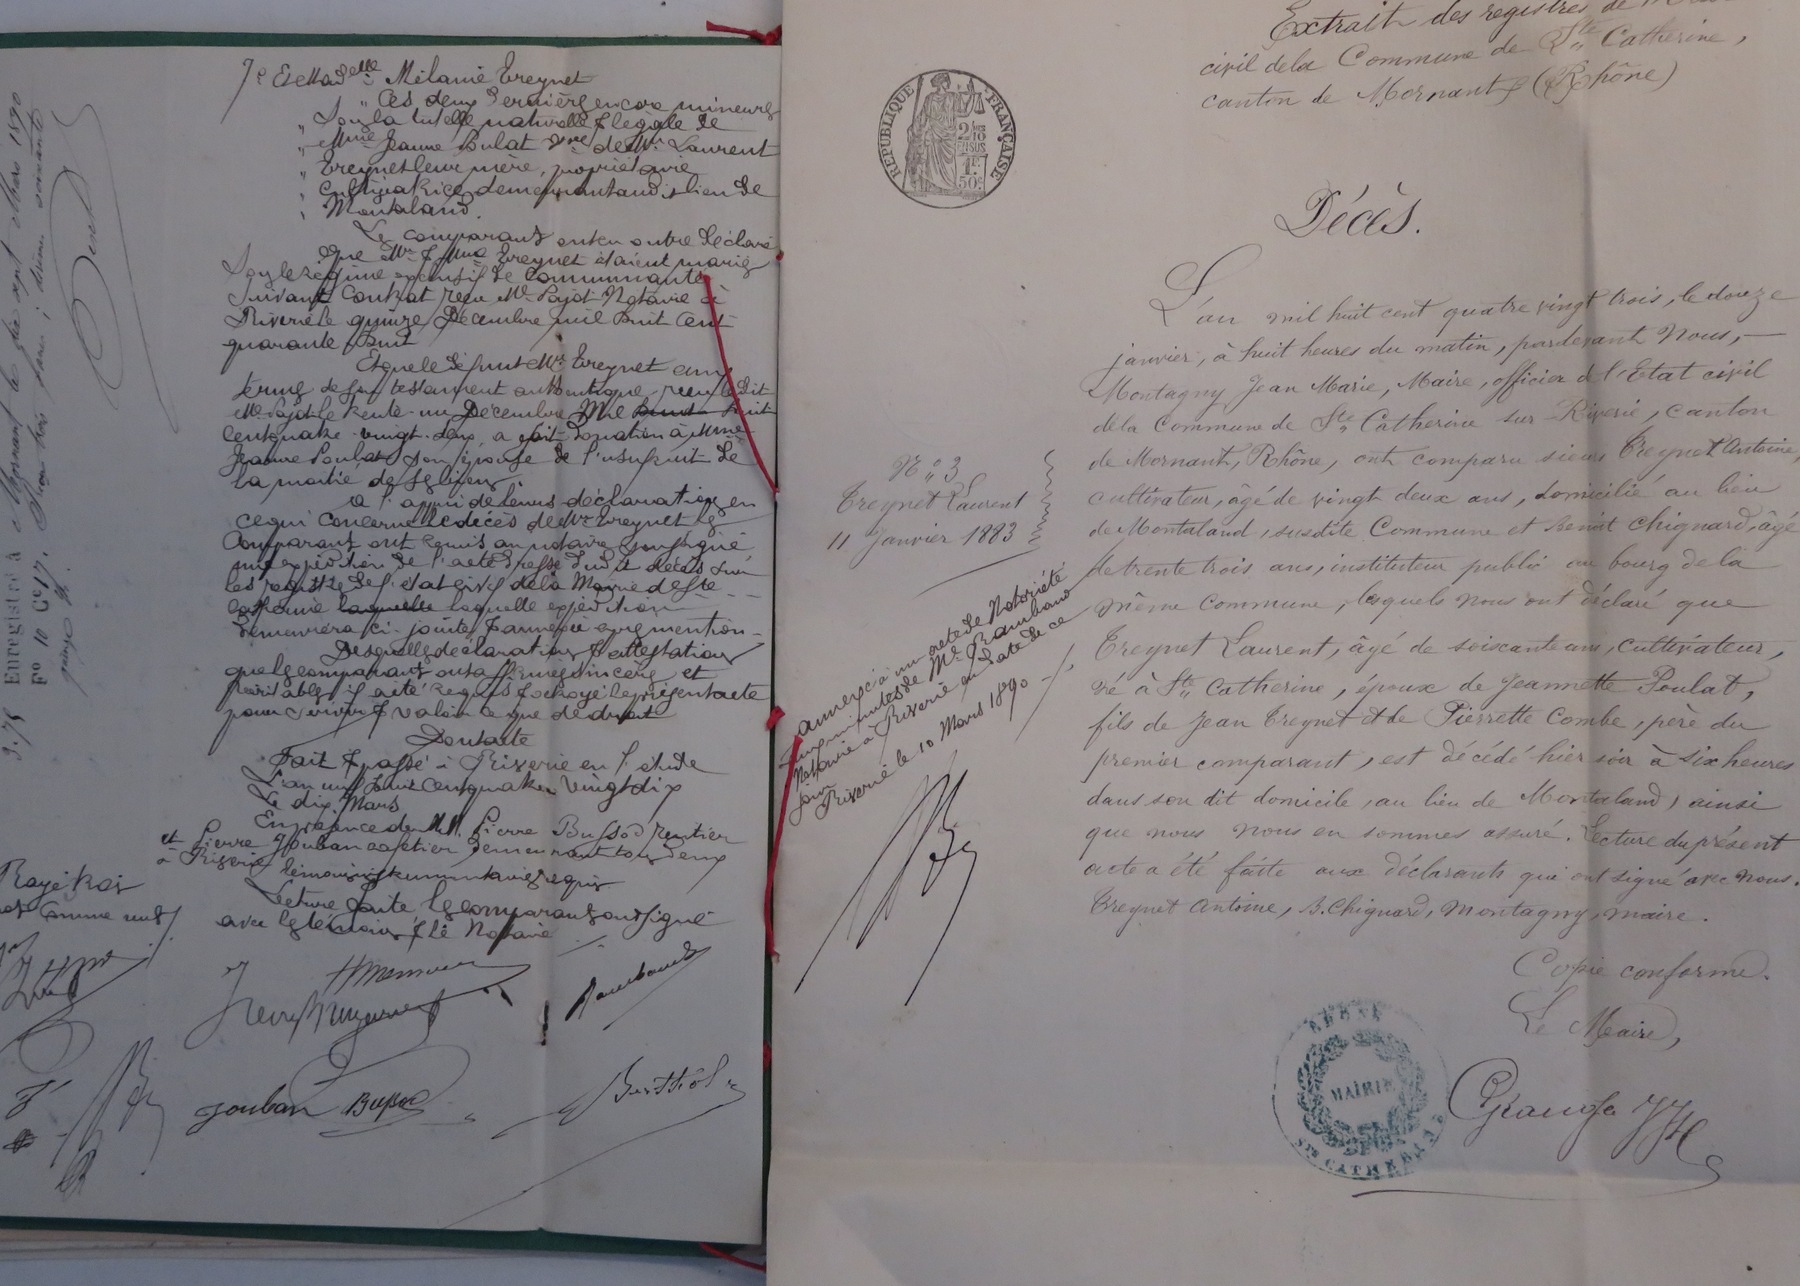 7e Et Madelle Mélanie Treynet
" Ces deux dernières encore mineures
" Sous la tutelle naturelle & légale de
" Mme Jeanne Poulat Vve de Mr Laurent
" Treynet leur mère, propriétaire
" cultivatrice demeurant audit lieu de
" Montaland.
Les comparants ont en outre déclaré
que Mr & Mme Treynet étaient mariés
Sous le régime exclusif de Communauté
Suivant Contrat reçu Me Pajot Notaire à
Riverie le quinze Décembre mil huit Cent
quarante huit
Et que le défunt Mr Treynet aux
termes de son testament authentique, reçu ledit
Me Pajot le trente-un Décembre Mil huit huit
Cent quatre-vingt-deux, a fait donation à Mme
Jeanne Poulat son épouse de l'usufruit de
la moitié de ses biens
A l'appui de leurs déclarations en
ce qui concerne le décès de Mr Treynet les
Comparants ont remis au notaire soussigné
une expédition de l'acte dressé dudit décès sur
les registres de l'état civil de la Mairie de Ste
Catherine laquelle laquelle expédition
demeurera ci-jointe & annexée après mention
Desquelles déclarations & attestations
que les comparants ont affirmé sincères et
véritables il a été requis & octroyé le présent acte
pour servir & valoir ce que de droit
Dont acte
Fait & passé à Riverie en l'étude
L'an mil huit Cent quatre Vingt dix
Le dix Mars
En présence de MM. Pierre Bussod rentier
et Pierre Jouban cafetier demeurant tous deux
à Riverie témoins instrumentaires requis
Lecture faite les comparants ont signé
avec les témoins & le Notaire
Rayé trois
mots comme nuls
Raimbaud
Jouban Bussod
Berthiol
Enregistré à Mornant le dix sept Mars 1890
Fo 10 Ce 17.
3.75
Extrait des registres de
civil de la Commune de Ste Catherine,
canton de Mornant (Rhône)
RÉPUBLIQUE FRANÇAISE
2/10es
EN SUS
1F.
50c
Décès.
L'an mil huit cent quatre vingt trois, le douze
janvier, à huit heures du matin, pardevant Nous,
Montagny Jean Marie, Maire, officier de l'Etat civil
de la Commune de Ste Catherine sur Riverie, canton
de Mornant, Rhône, ont comparu sieurs Treynet Antoine,
cultivateur, âgé de vingt deux ans, domicilié au lieu
de Montaland, susdite Commune et Benoit Chignard, âgé
de trente trois ans, instituteur public au bourg de la
même Commune, lesquels nous ont déclaré que
Treynet Laurent, âgé de soixante ans, cultivateur,
né à Ste Catherine, époux de Jeannette Poulat,
fils de Jean Treynet et de Pierrette Combe, père du
premier comparant, est décédé hier soir à six heures
dans son dit domicile, au lieu de Montaland, ainsi
que nous nous en sommes assuré. Lecture du présent
acte a été faite aux déclarants qui ont signé avec nous.
Treynet Antoine, B. Chignard, Montagny, maire.
Copie conforme.
Le Maire,
RHÔNE
MAIRIE
STE CATHERINE
No 3
Treynet Laurent
11 Janvier 1883
annexé à un acte de Notoriété
aux minutes de Me Raimbaud
Notaire à Riverie en date de ce
jour
Riverie le 10 Mars 1890